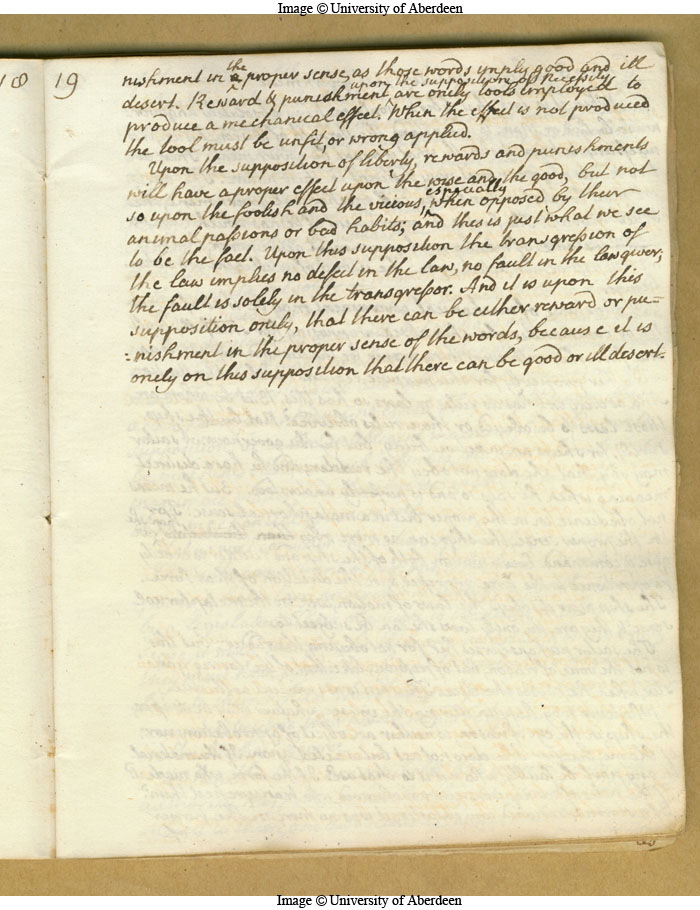 Image © University of Aberdeen
18
19
nishment in the proper sense, as those words imply good and ill
desert. Reward & punishment upon the supposition of necessity are onely tools imployed to
produce a mechanical effect. When the effect is not produced
the tool must be unfit or wrong applied.
Upon the supposition of liberty, rewards and punishments
will have a proper effect upon the wise and the good, but not
so upon the foolish and the vicious, especially when opposed by their
animal passions or bad habits; and this is just what we see
to be the fact. Upon this supposition the transgression of
the law implies no defect in the law, no fault in the lawgiver;
the fault is solely in the transgressor. And it is upon this
supposition onely, that there can be either reward or pu=
=nishment in the proper sense of the words, because it is
onely on this supposition that there can be good or ill desert.
Image © University of Aberdeen